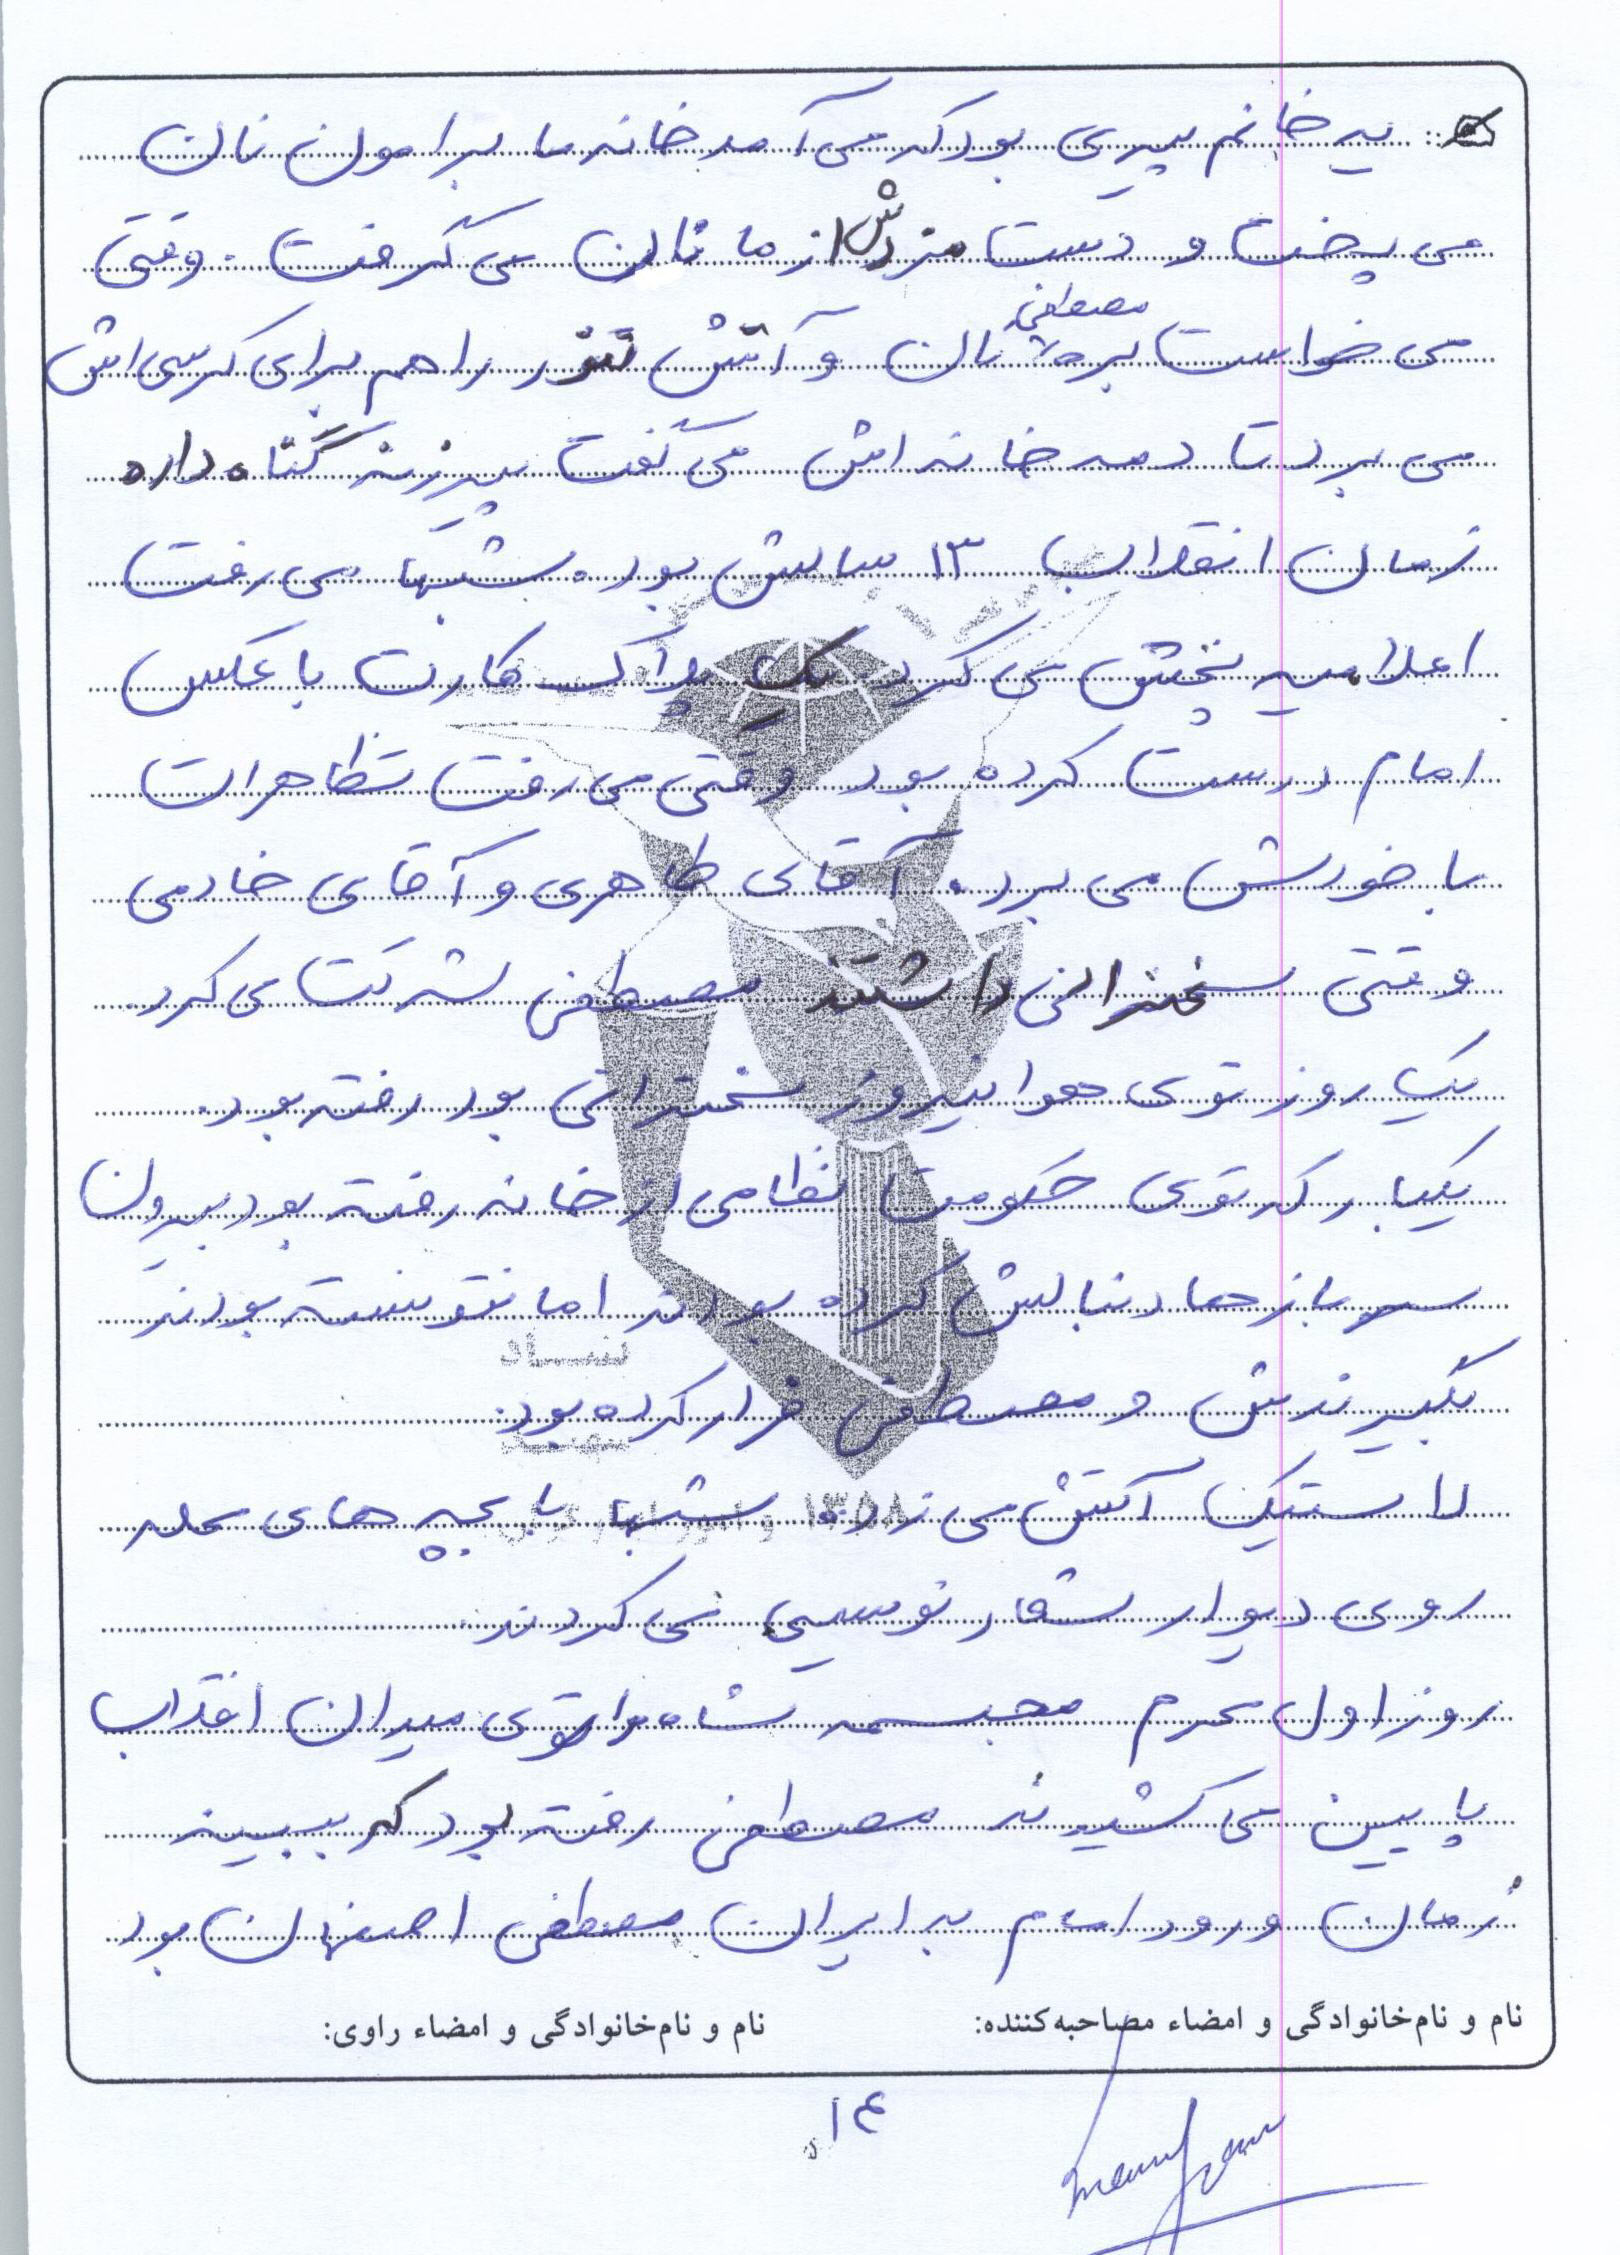 یه خانم پیری بود که می‌آمد خانه ما برامون نان
می پخت و دست مزدش از ما نان می گرفت. وقتی
مصطفی
می خواست بره نان و آتش تنور را هم برای کرسی اش
می برد تا دم خانه اش می گفت پیرزنه گناه داره
زمان انقلاب ۱۳ سالش بود. شبها می رفت
اعلامیه پخش می کرد یک پلاک کارت با عکس
امام درست کرده بود وقتی می رفت تظاهرات
با خودش می برد. آقای طاهری و آقای خادمی
وقتی سخنرانی داشتند مصطفی شرکت می کرد.
یک روز توی هوانیروز سخنرانی بود رفته بود.
یکبار که توی حکومت نظامی از خانه رفته بود بیرون
سربازها دنبالش کرده بودند اما نتونسته بودند
بگیرندش و مصطفی فرار کرده بود.
لاستیک آتش می زد. شبها با بچه های محله
روی دیوار شعار نویسی می کردند.
روز اول محرم مجسمه شاه را توی میدان انقلاب
پایین می کشیدند مصطفی رفته بود که ببینه
زمان ورود امام به ایران مصطفی اصفهان بود
نام و نام‌خانوادگی و امضاء مصاحبه‌کننده: نام و نام‌خانوادگی و امضاء راوی:
۱۴